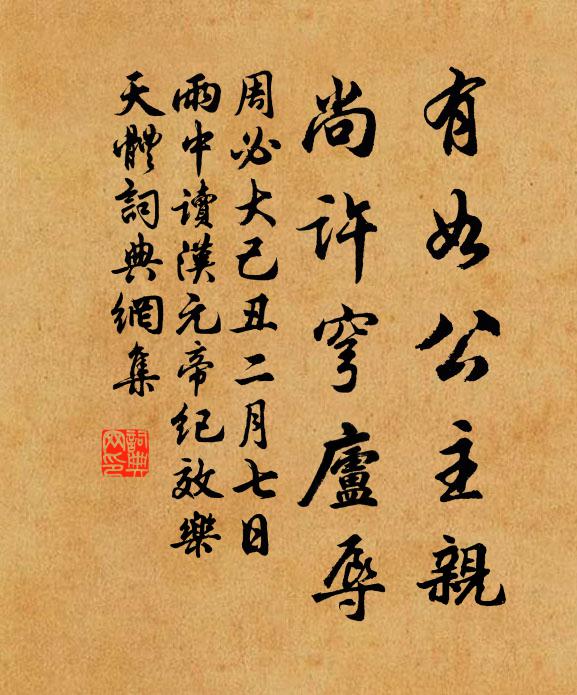 有如公主親
尚許穹廬辱
周必大己丑二月七日
雨中讀漢元帝紀效樂
天體詞典網集
詞典
网印